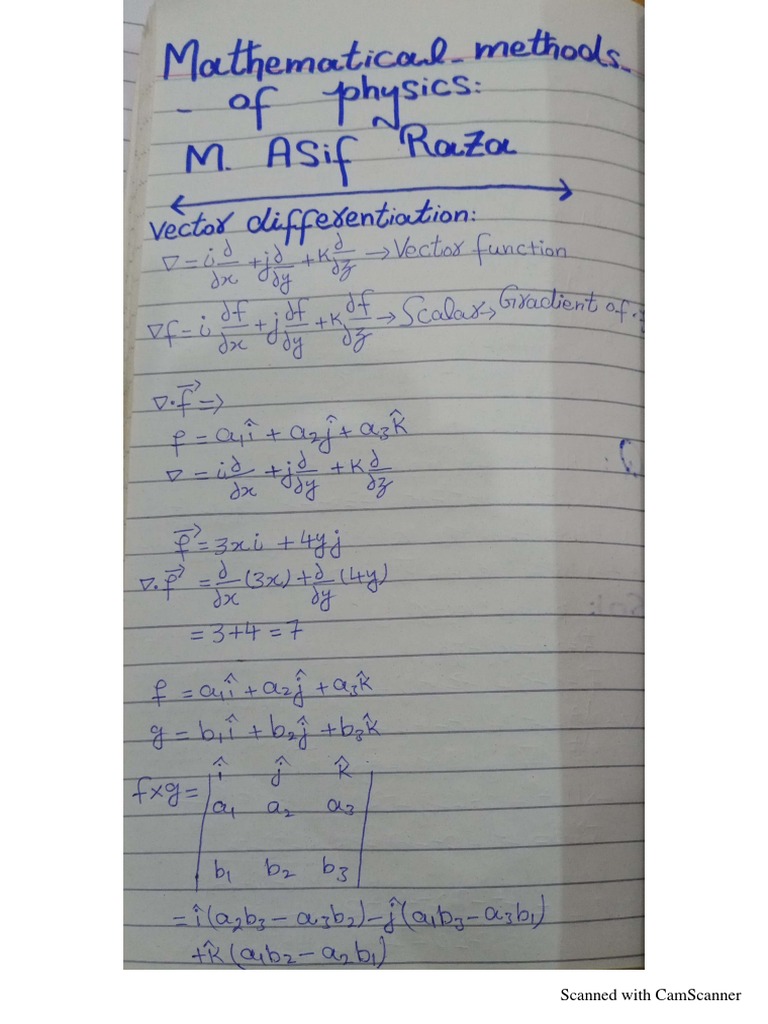 Mathematical methods
of physics:
M. ASif Raza
Vector differentiation:
∇ = i ∂/∂x + j ∂/∂y + k ∂/∂z → Vector function
∇f = i ∂f/∂x + j ∂f/∂y + k ∂f/∂z → Scalar → Gradient of
∇·f⃗ ⇒
f = a₁î + a₂ĵ + a₃k̂
∇ = i ∂/∂x + j ∂/∂y + k ∂/∂z
f⃗ = 3xi + 4yj
∇·f⃗ = ∂/∂x (3x) + ∂/∂y (4y)
= 3+4 = 7
f = a₁î + a₂ĵ + a₃k̂
g = b₁î + b₂ĵ + b₃k̂
î ĵ k̂
f×g = | a₁ a₂ a₃ |
b₁ b₂ b₃
= î(a₂b₃ − a₃b₂) − ĵ(a₁b₃ − a₃b₁)
+ k̂(a₁b₂ − a₂b₁)
Scanned with CamScanner